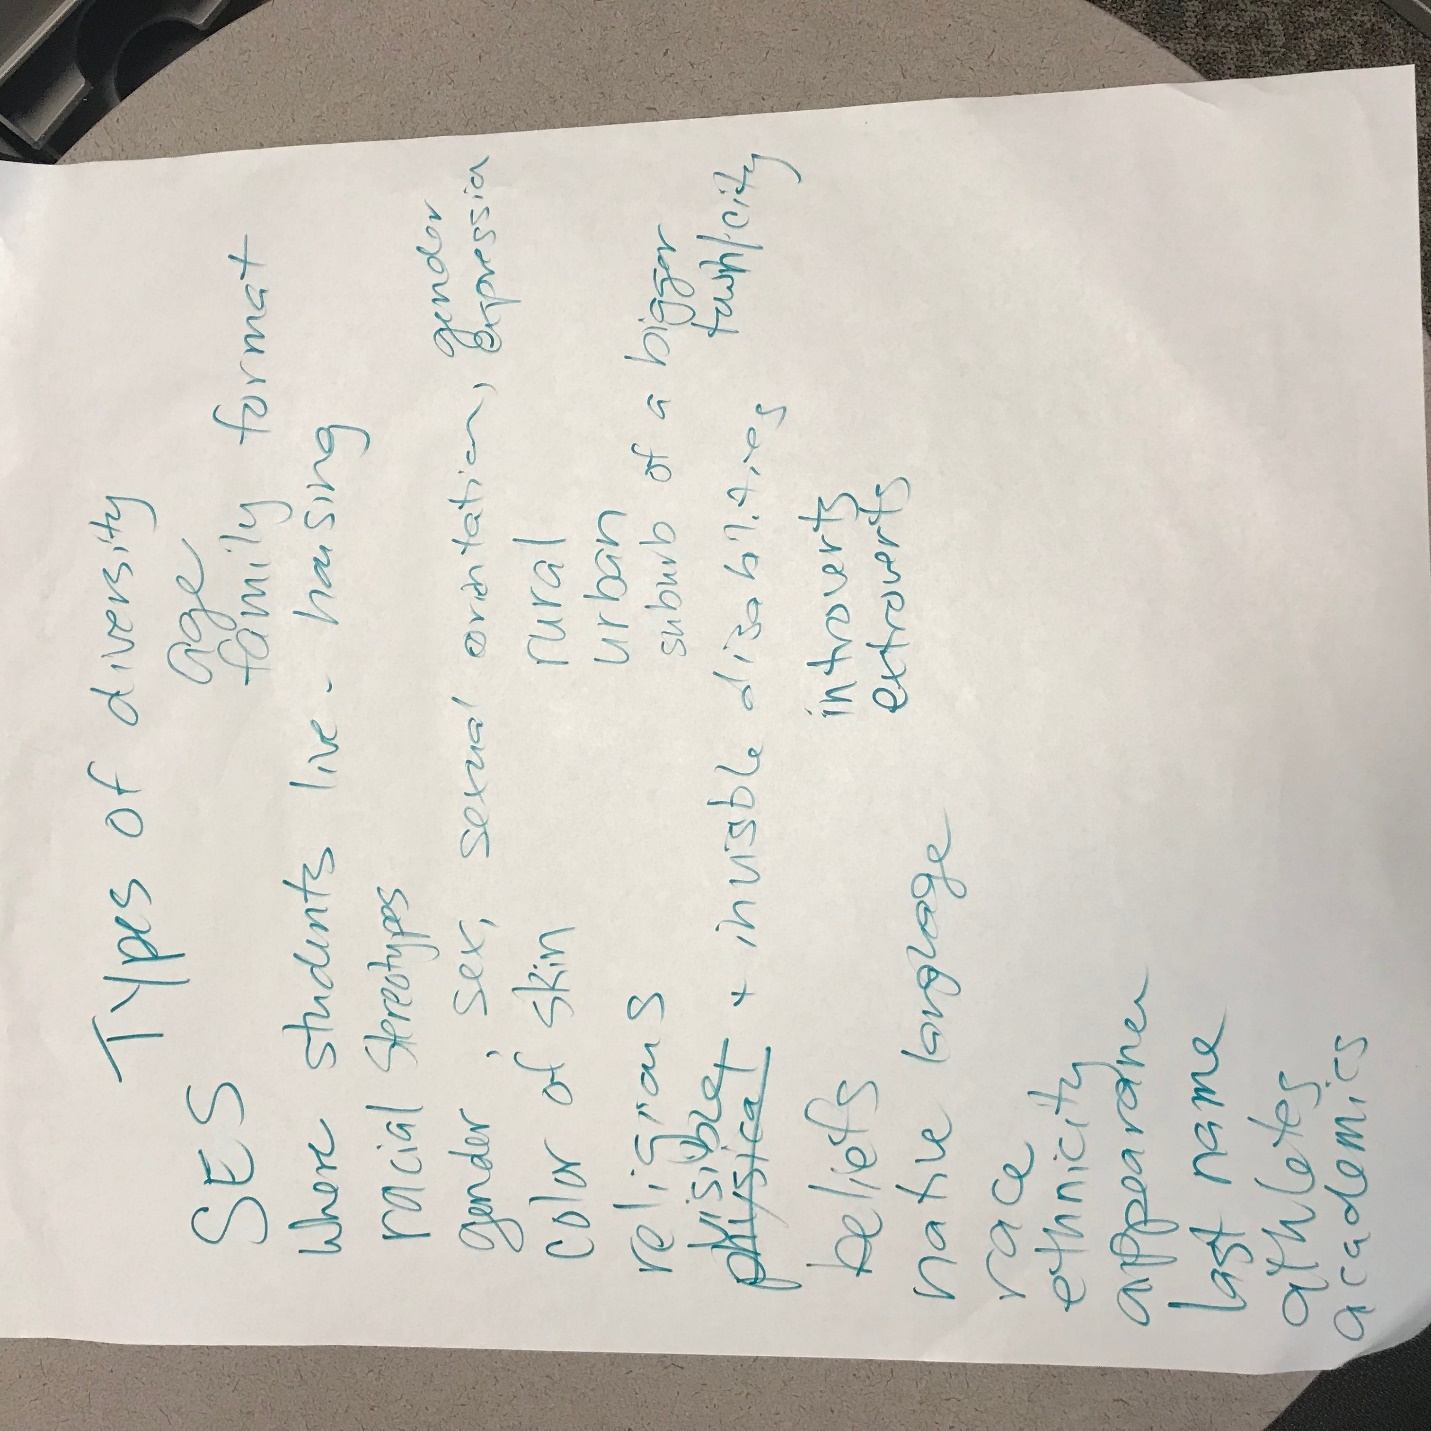 Types of diversity
SES
age
family format
where students live - housing
racial stereotypes
gender, sex, sexual orintation, gender expression
color of skin
rural
urban
suburb of a bigger town/city
religions
visible + invisible disabilities
physical
introverts
extroverts
beliefs
native language
race
ethnicity
appearance
last name
athletes
academics